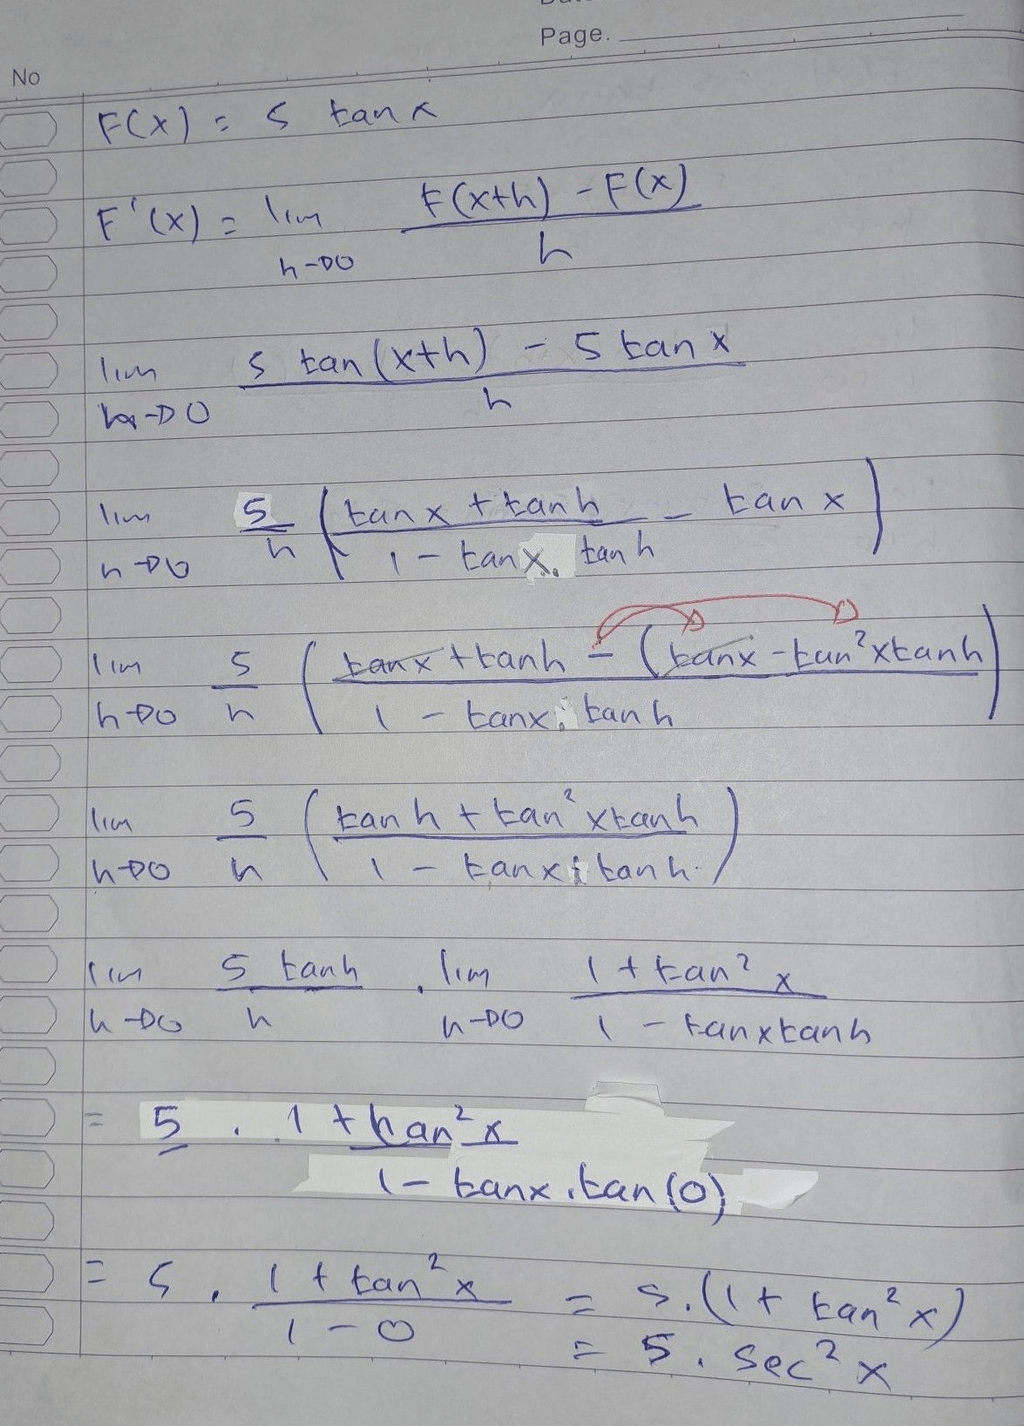 Page.
No
F(x) = 5 tan x
F'(x) = lim h→0 (F(x+h) - F(x)) / h
lim h→0 (5 tan(x+h) - 5 tan x) / h
lim h→0 5/h ((tan x + tan h) / (1 - tan x. tan h) - tan x)
lim h→0 5/h ((tanx + tanh - (tanx - tan²xtanh) / (1 - tanx. tanh))
lim h→0 5/h ((tanh + tan²xtanh) / (1 - tanx. tanh))
lim h→0 5 tanh / h . lim h→0 (1 + tan²x) / (1 - tanxtanh)
= 5 . (1 + tan²x) / (1 - tanx.tan(0))
= 5 . (1 + tan²x) / (1 - 0) = 5.(1 + tan²x)
= 5. sec²x